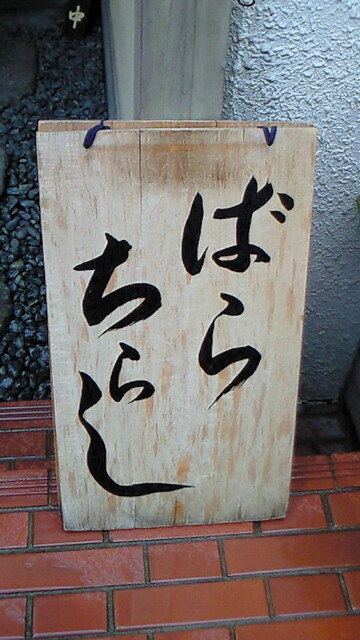 ばら
ちらし
中